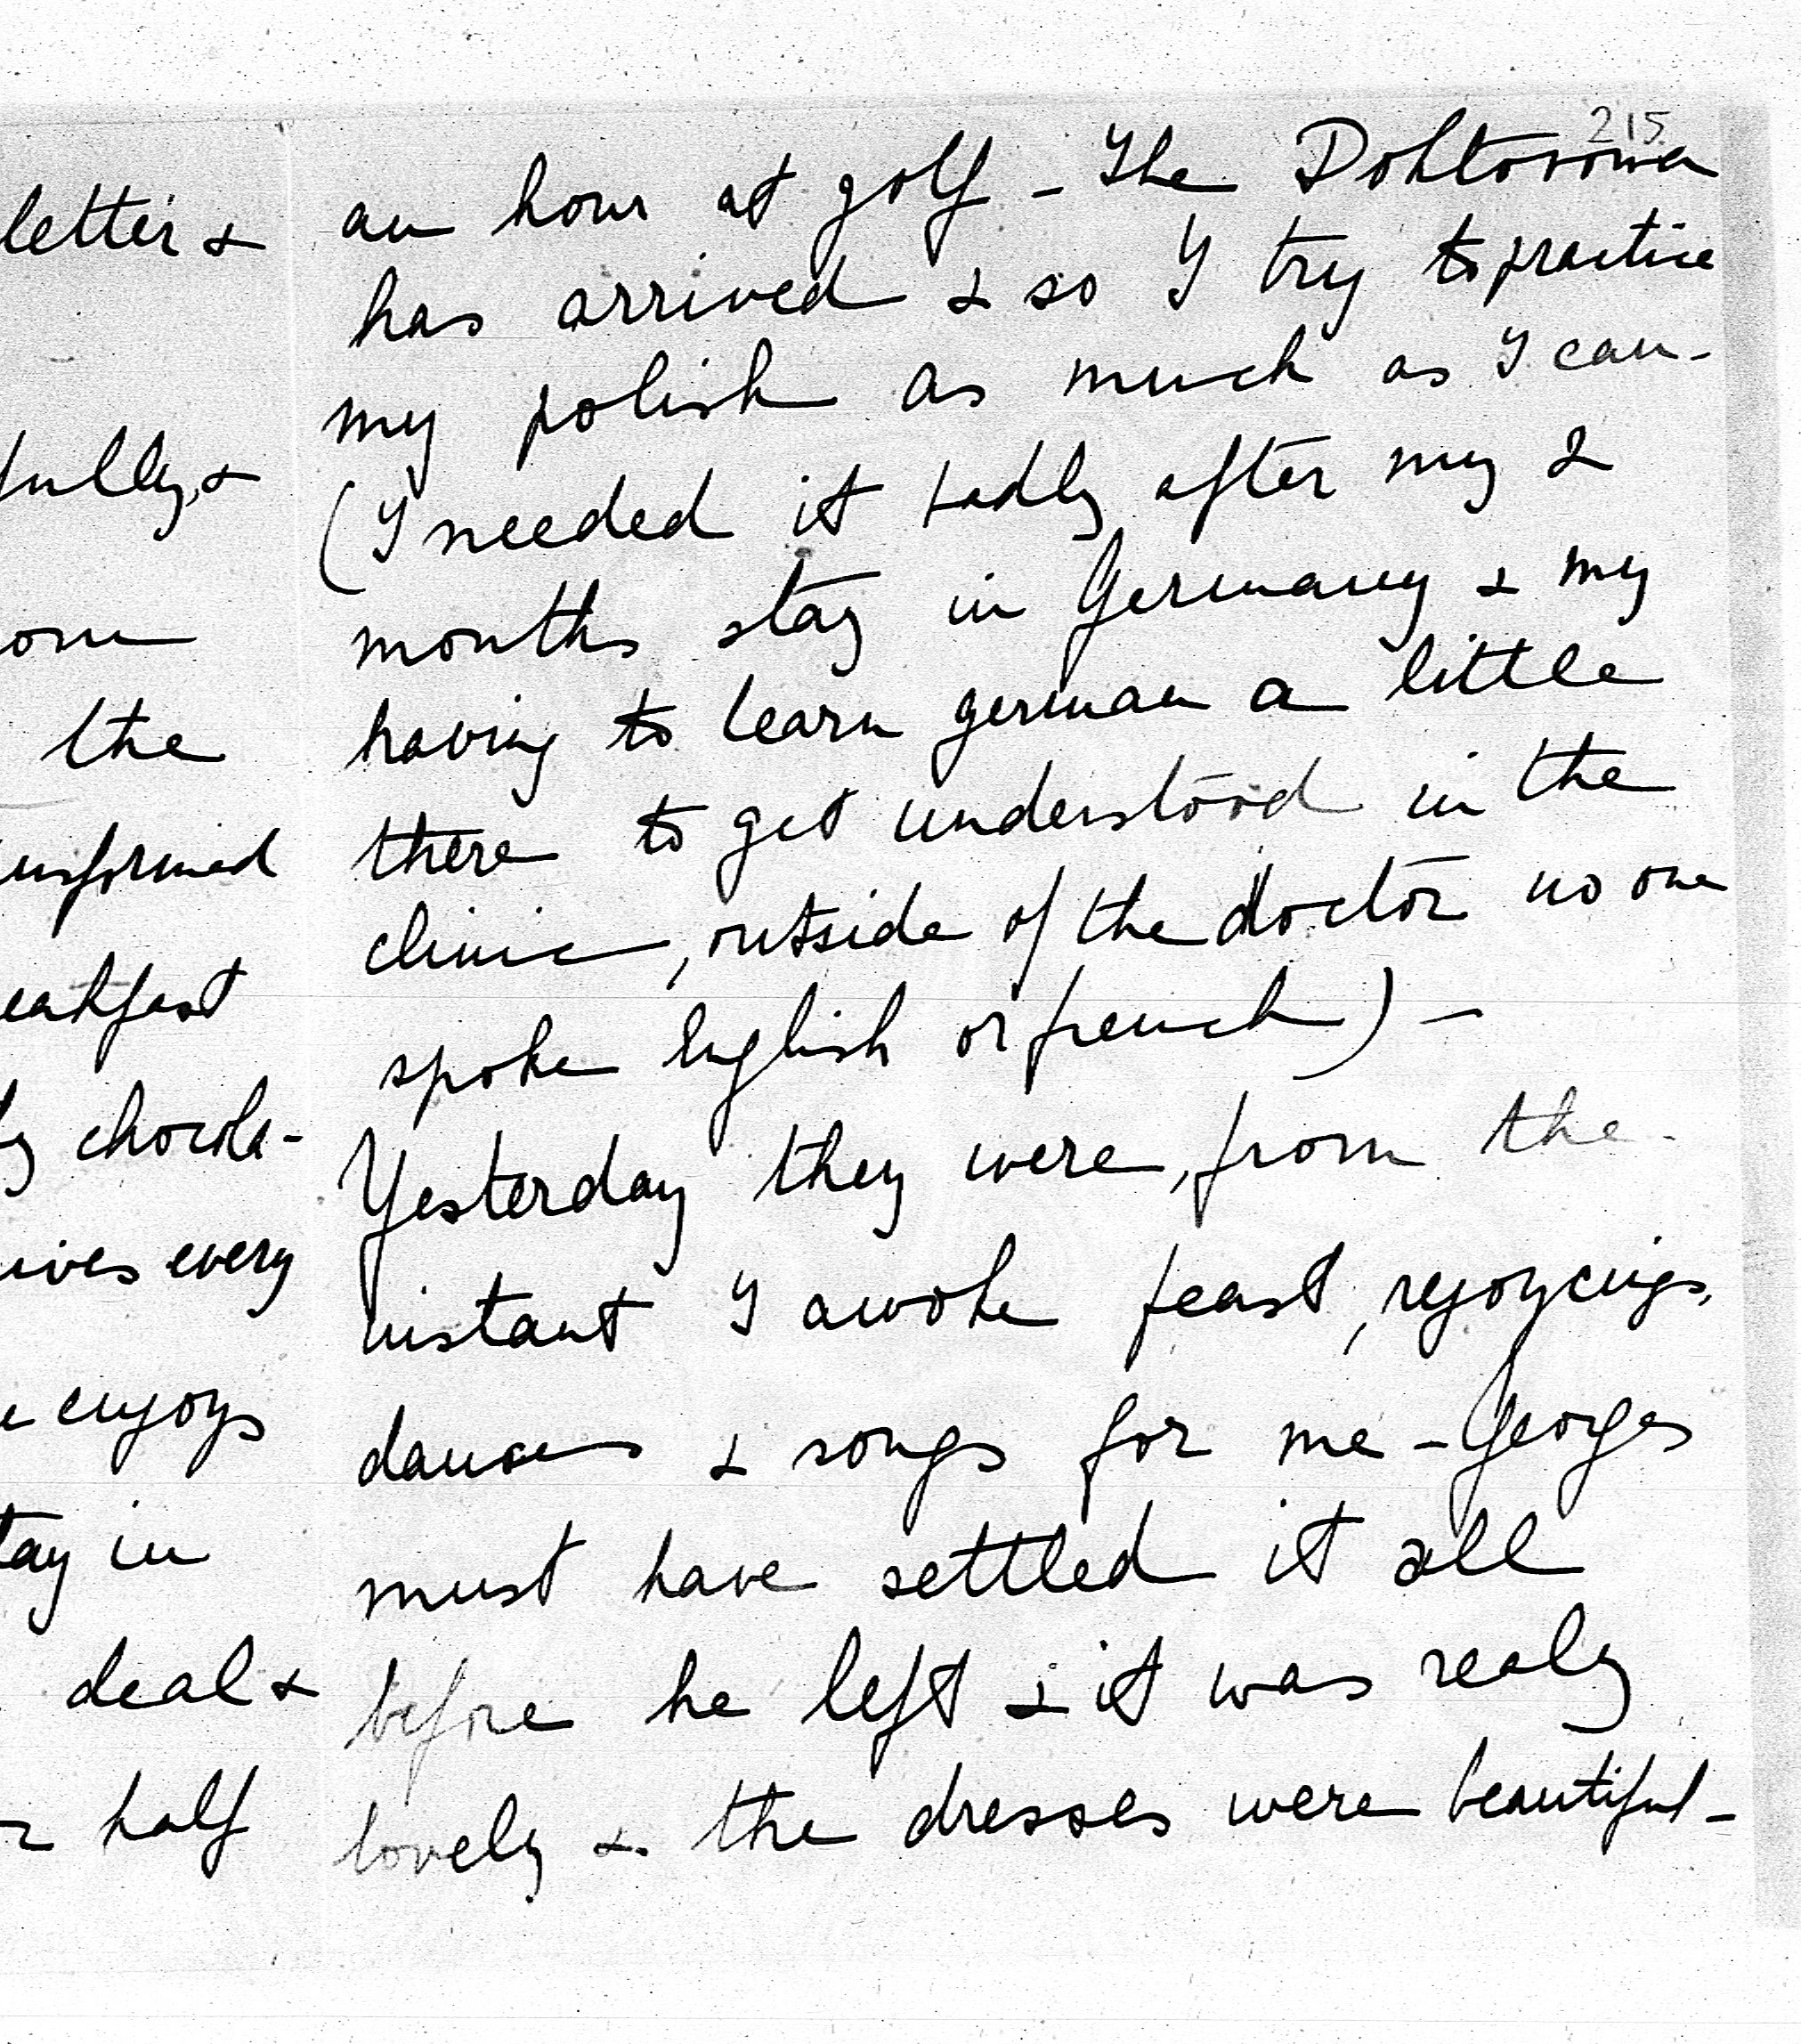 215
letter &
fully, &
the
chocola-
every
enjoys
in
deal &
half
an hour at golf - The Doktorowa
has arrived & so I try to practice
my polish as much as I can -
(I needed it badly after my 2
months stay in Germany & my
having to learn german a little
there to get understood in the
clinic, outside of the doctor no one
spoke English or french) -
Yesterday they were, from the
instant I awoke feast, rejoycings,
dances & songs for me - Georges
must have settled it all
before he left & it was realy
lovely & the dresses were beautiful -